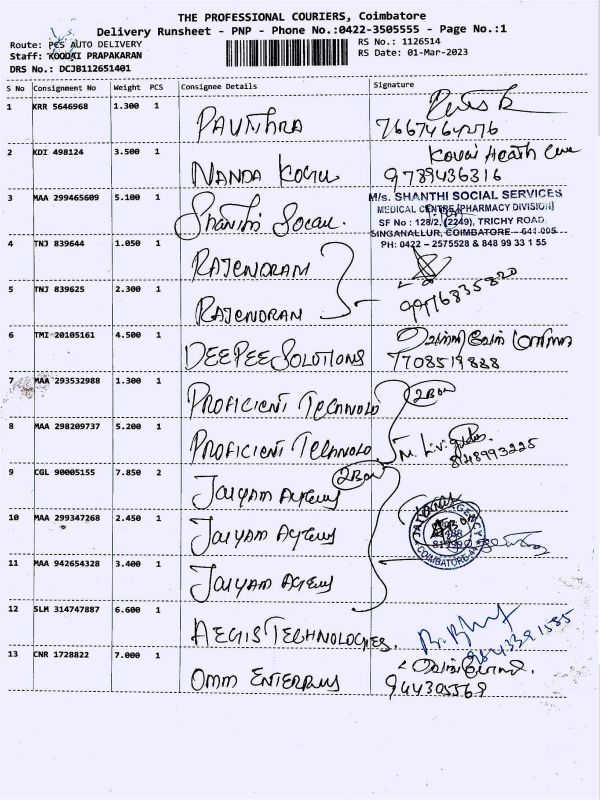 THE PROFESSIONAL COURIERS, Coimbatore
Delivery Runsheet - PNP - Phone No.:0422-3505555 - Page No.:1
Route: PCS AUTO DELIVERY
RS No.: 1126514
Staff: KOODAI PRAPAKARAN
RS Date: 01-Mar-2023
DRS No.: DCJB112651401
S No Consignment No Weight PCS Consignee Details Signature
1 KRR 5646968 1.300 1 PAVITHRA
2 KDI 498124 3.500 1 NANDA
9789436316
3 MAA 299465609 5.100 1 Shanthi Social
M/s. SHANTHI SOCIAL SERVICES
MEDICAL CENTRE (PHARMACY DIVISION)
SF No : 128/2, (2249), TRICHY ROAD,
SINGANALLUR, COIMBATORE - 641 005
PH: 0422 - 2575528 & 848 99 33 1 55
4 TNJ 839644 1.050 1 RAJENDRAN
5 TNJ 839625 2.300 1 RAJENDRAN
9976835820
6 TMI 20105161 4.500 1 DEEPEE SOLUTIONS
7708519888
7 MAA 293532988 1.300 1 PROFICIENT TECHNOLO
2 Box
8 MAA 298209737 5.200 1 PROFICIENT TECHNOLO
8148993225
9 CGL 90005155 7.850 2 JAIYAM
2 Box
10 MAA 299347268 2.450 1 JAIYAM
11 MAA 942654328 3.400 1 JAIYAM
12 SLM 314747887 6.600 1 AEGIS TECHNOLOGIES.
9843391585
13 CNR 1728822 7.000 1 OMM ENTERPRISES
944305569